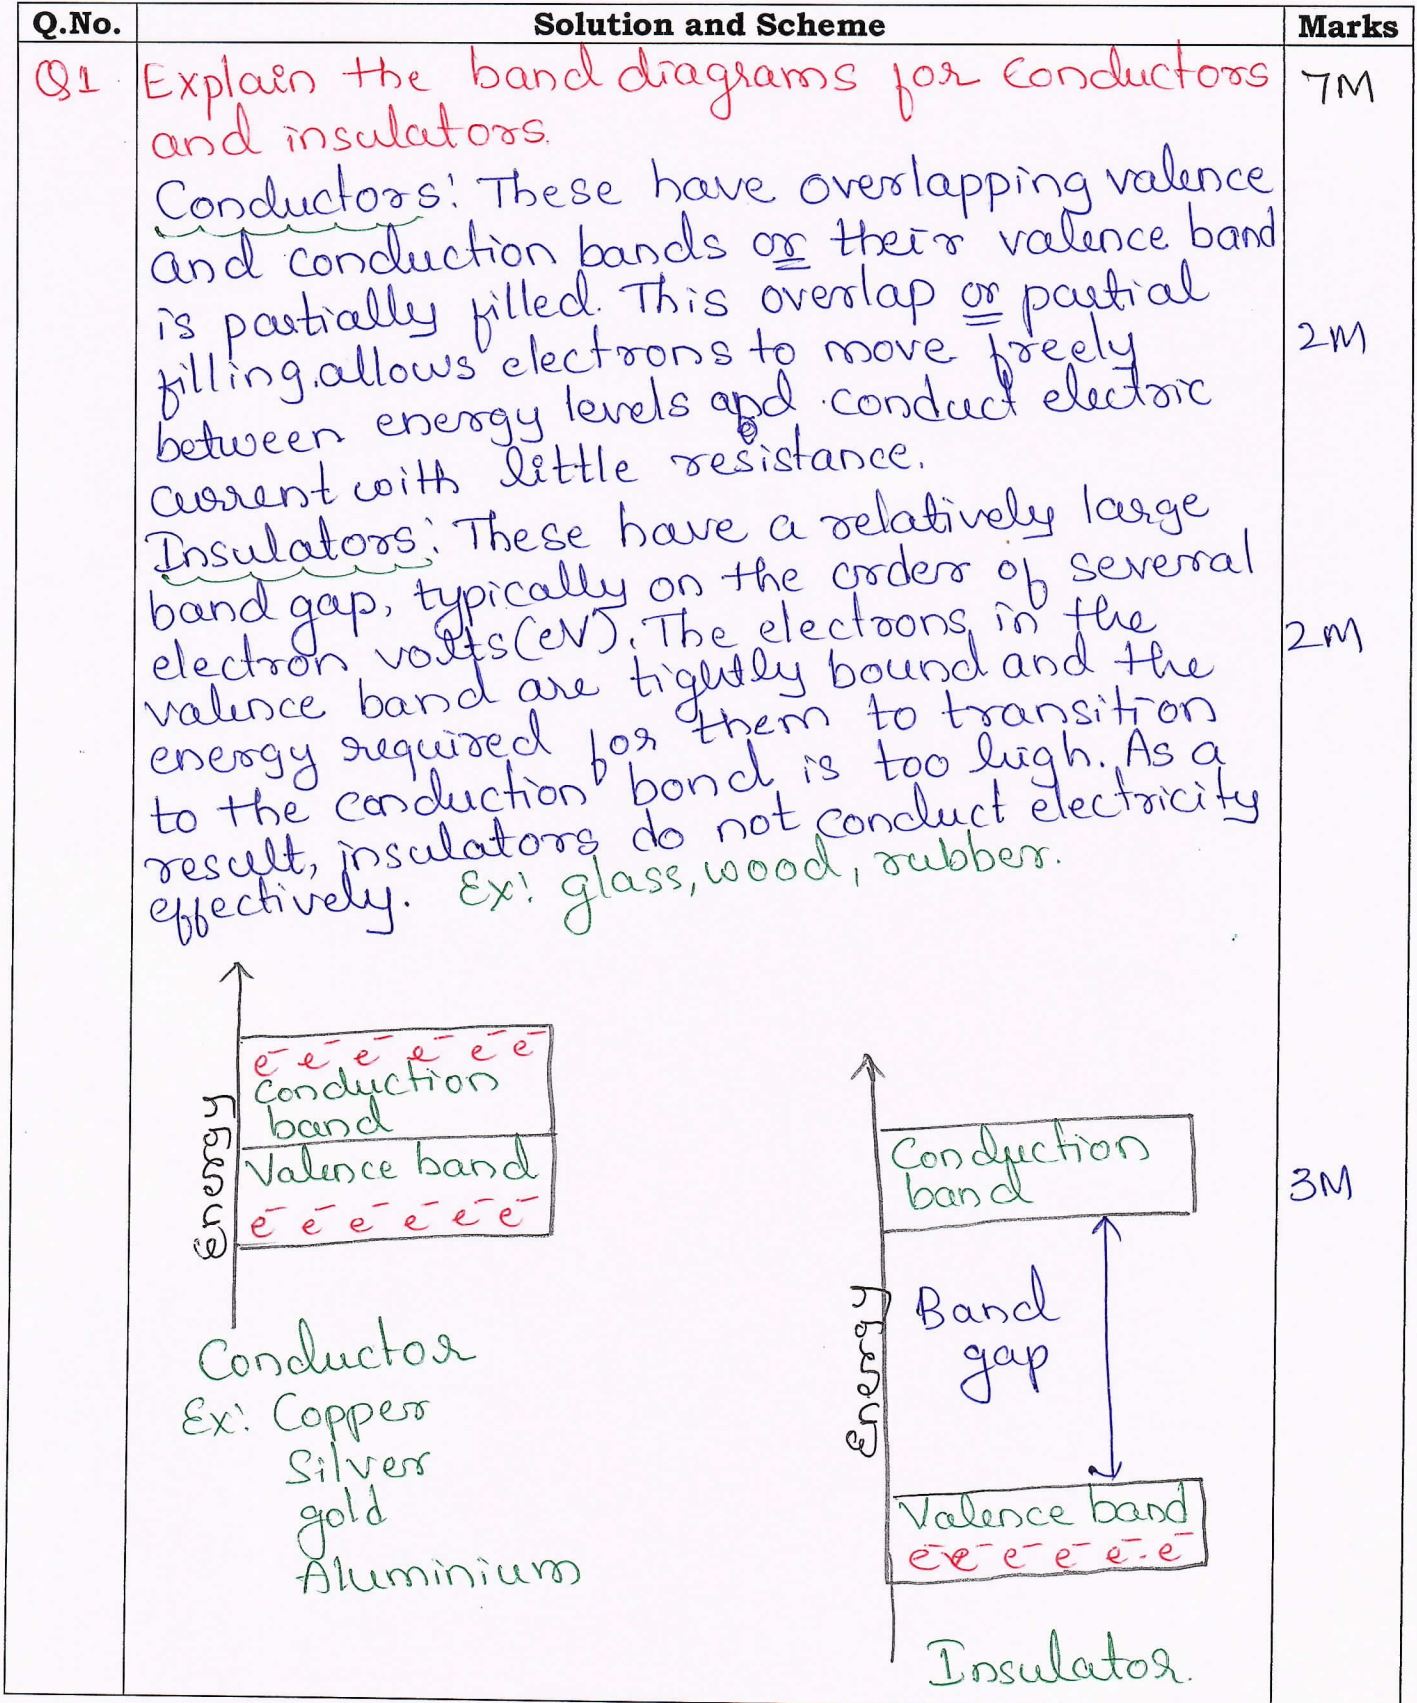 Q.No. Solution and Scheme Marks
Q1. Explain the band diagrams for conductors 7M
and insulators.
Conductors: These have overlapping valence
and conduction bands or their valence band
is partially filled. This overlap or partial
filling allows electrons to move freely 2M
between energy levels and conduct electric
current with little resistance.
Insulators: These have a relatively large
band gap, typically on the order of several
electron volts(eV). The electrons in the 2M
valence band are tightly bound and the
energy required for them to transition
to the conduction bond is too high. As a
result, insulators do not conduct electricity
effectively. Ex: glass, wood, rubber.
e⁻ e⁻ e⁻ e⁻ e⁻ e⁻
Conduction
band
Valence band
e⁻ e⁻ e⁻ e⁻ e⁻ e⁻
Energy
Conductor
Ex: Copper
Silver
gold
Aluminium
Conduction
band
3M
Band
gap
Energy
Valence band
e⁻ e⁻ e⁻ e⁻ e⁻ e⁻
Insulator.